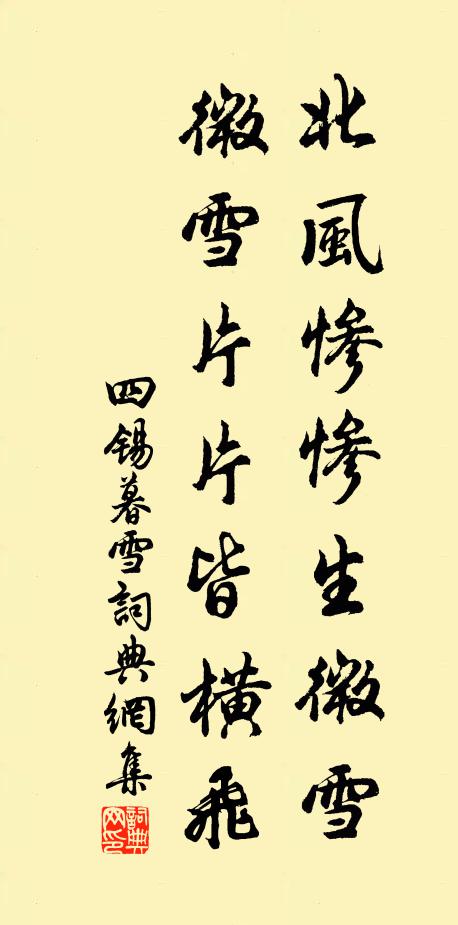 北風慘慘生微雪
微雪片片皆橫飛
四锡暮雪詞典網集
詞典网印